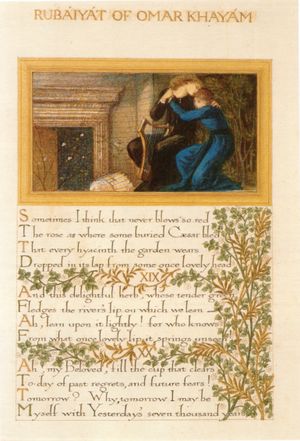 RUBÁIYÁT OF OMAR KHAYÁM
Sometimes I think that never blows so red
The rose as where some buried Cæsar bled
That every hyacinth the garden wears
Dropped in its lap from some once lovely head
XIX
And this delightful herb, whose tender green
Fledges the river's lip on which we learn
Ah, lean upon it lightly! for who knows
From what once lovely lip it springs unseen
XX
Ah, my Beloved, fill the cup that clears
To-day of past regrets, and future fears!
Tomorrow? Why, tomorrow I may be
Myself with Yesterdays' seven thousand years